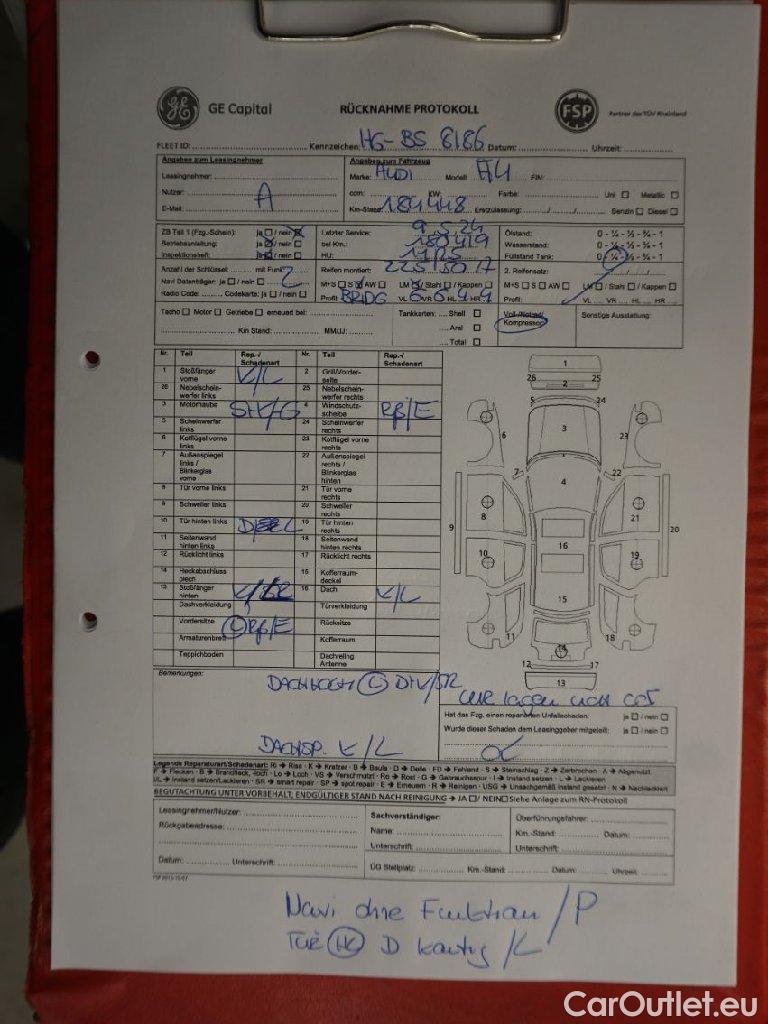 GE Capital RÜCKNAHME PROTOKOLL FSP Partner des TÜV Rheinland
FLEET ID: Kennzeichen: HG-BS 8186 Datum: Uhrzeit:
Angaben zum Leasingnehmer
Leasingnehmer:
Nutzer: A
E-Mail:
Angaben zum Fahrzeug
Marke: AUDI Modell A4 FIN:
ccm: KW: Farbe: Uni Metallic
Km-Stand: 184448 Erstzulassung: Benzin Diesel
ZB Teil 1 (Fzg.-Schein): ja / nein
Betriebsanleitung: ja / nein
Inspektionsheft: ja / nein
Letzter Service:
bei Km.: 180419
HU: 11/25
Ölstand: 0 - ¼ - ½ - ¾ - 1
Wasserstand: 0 - ¼ - ½ - ¾ - 1
Füllstand Tank: 0 - ¼ - ½ - ¾ - 1
Anzahl der Schlüssel: mit Funk: 2
Navi Datenträger: ja / nein
Radio Code: Codekarte: ja / nein
Reifen montiert: 225/50 17
M+S S AW LM / Stahl / Kappen
Profil BRIDG VL 6 VR 6 HL 4 HR 4
2. Reifensatz:
M+S S AW LM / Stahl / Kappen
Profil: VL VR HL HR
Tacho Motor Getriebe erneuert bei:
Km Stand: MM/JJ:
Tankkarten: Shell
Aral
Total
Voll-/Notrad/
Kompressor
Sonstige Ausstattung:
Nr. Teil Rep.-/ Schadenart Nr. Teil Rep.-/ Schadenart
1 Stoßfänger vorne K/L 2 Grill/Vorderseite
26 Nebelscheinwerfer links 25 Nebelscheinwerfer rechts
3 Motorhaube 4 Windschutzscheibe Rß/E
5 Scheinwerfer links 24 Scheinwerfer rechts
6 Kotflügel vorne links 23 Kotflügel vorne rechts
7 Außenspiegel links / Blinkerglas vorne 22 Außenspiegel rechts / Blinkerglas hinten
8 Tür vorne links 21 Tür vorne rechts
9 Schweller links 20 Schweller rechts
10 Tür hinten links 19 Tür hinten rechts
11 Seitenwand hinten links 18 Seitenwand hinten rechts
12 Rücklicht links 17 Rücklicht rechts
14 Heckabschlussblech 15 Kofferraumdeckel
13 Stoßfänger hinten 16 Dach K/L
Dachverkleidung Türverkleidung
Vordersitze L Rß/E Rücksitze
Armaturenbrett Kofferraum
Teppichboden Dachreling Antenne
1
26 2 25
5 24
6 3 23
7 22
4
8 21
9 20
16
10 19
15
11 18
14
12 17
13
Bemerkungen:
DACHSP. K/L
Hat das Fzg. einen reparierten Unfallschaden: ja / nein
Wurde dieser Schaden dem Leasinggeber mitgeteilt: ja / nein
Legende Reparaturart/Schadenart: Ri → Riss - K → Kratzer - B → Beule - D → Delle - FD → Fehlend - S → Steinschlag - Z → Zerbrochen - A → Abgenutzt
BEGUTACHTUNG UNTER VORBEHALT, ENDGÜLTIGER STAND NACH REINIGUNG → JA / NEIN Siehe Anlage zum RN-Protokoll
Leasingnehmer/Nutzer:
Rückgabeadresse:
Datum: Unterschrift:
Sachverständiger:
Name:
Unterschrift:
Überführungsfahrer:
Km.-Stand: Datum:
Unterschrift:
ÜG Stellplatz: Km.-Stand: Datum: Uhrzeit:
Navi ohne Funktion / P
Türe D kantig /L
CarOutlet.eu